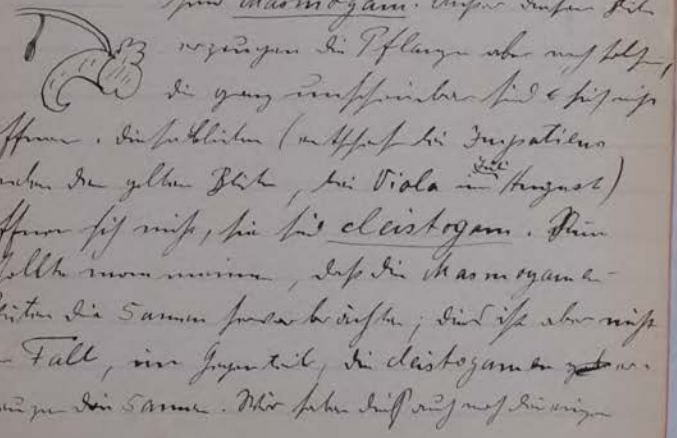 sind chasmogam. Außer diesen Blüten
erzeugen die Pflanzen aber noch solche,
die ganz unscheinbar sind & sich nicht
öffnen. diese Blüten (entstehen bei Impatiens
neben den gelben Blüten, bei Viola im Juli August)
öffnen sich nicht, sie sind cleistogam. Nun
sollte man meinen, daß die chasmogamen
blüten die Samen hervorbrächten; dies ist aber nicht
Fall, im Gegenteil, die cleistogamen er-
zeugen den Samen. Wir haben dieß auch noch